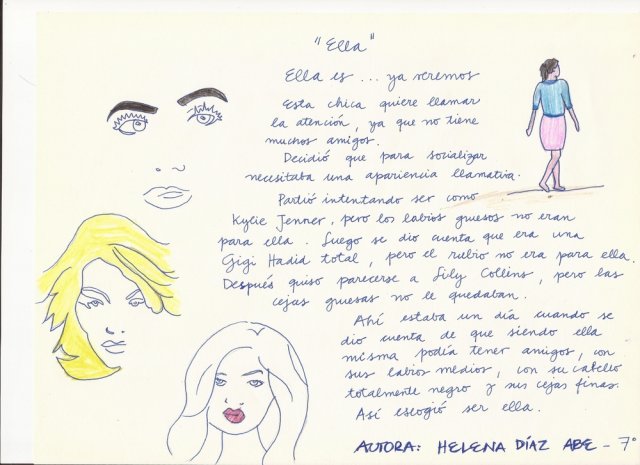 "Ella"
Ella es ... ya veremos
Esta chica quiere llamar
la atención, ya que no tiene
muchos amigos.
Decidió que para socializar
necesitaba una apariencia llamativa.
Partió intentando ser como
Kylie Jenner, pero los labios gruesos no eran
para ella. Luego se dio cuenta que era una
Gigi Hadid total, pero el rubio no era para ella.
Después quiso parecerse a Lily Collins, pero las
cejas gruesas no le quedaban.
Ahí estaba un día cuando se
dio cuenta de que siendo ella
misma podía tener amigos, con
sus labios medios, con su cabello
totalmente negro y sus cejas finas.
Así escogió ser ella.
AUTORA: HELENA DÍAZ ABE - 7°